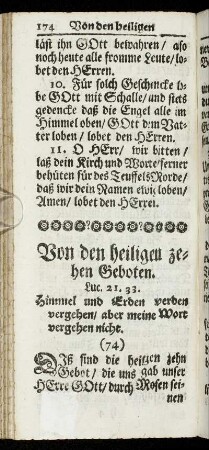 174 Von den heiligen
läst ihn GOtt bewahren / also
noch heute alle fromme Leute / lo-
bet den HErren.
10. Für solch Geschencke lo-
be GOtt mit Schalle / und stets
gedencke daß die Engel alle im
Himmel oben / GOtt dem Vat-
ter loben / lobet den HErren.
11. O HErr / wir bitten /
laß dein Kirch und Worte / ferner
behüten für des Teuffels Morde /
daß wir dein Namen ewig loben /
Amen / lobet den HErren.
Von den heiligen ze-
hen Geboten.
Luc. 21. 33.
Himmel und Erden werden
vergehen / aber meine Wort
vergehen nicht.
(74)
DIß sind die heilgen zehn
Gebot / die uns gab unser
HErre GOtt / durch Mosen sei-
nen